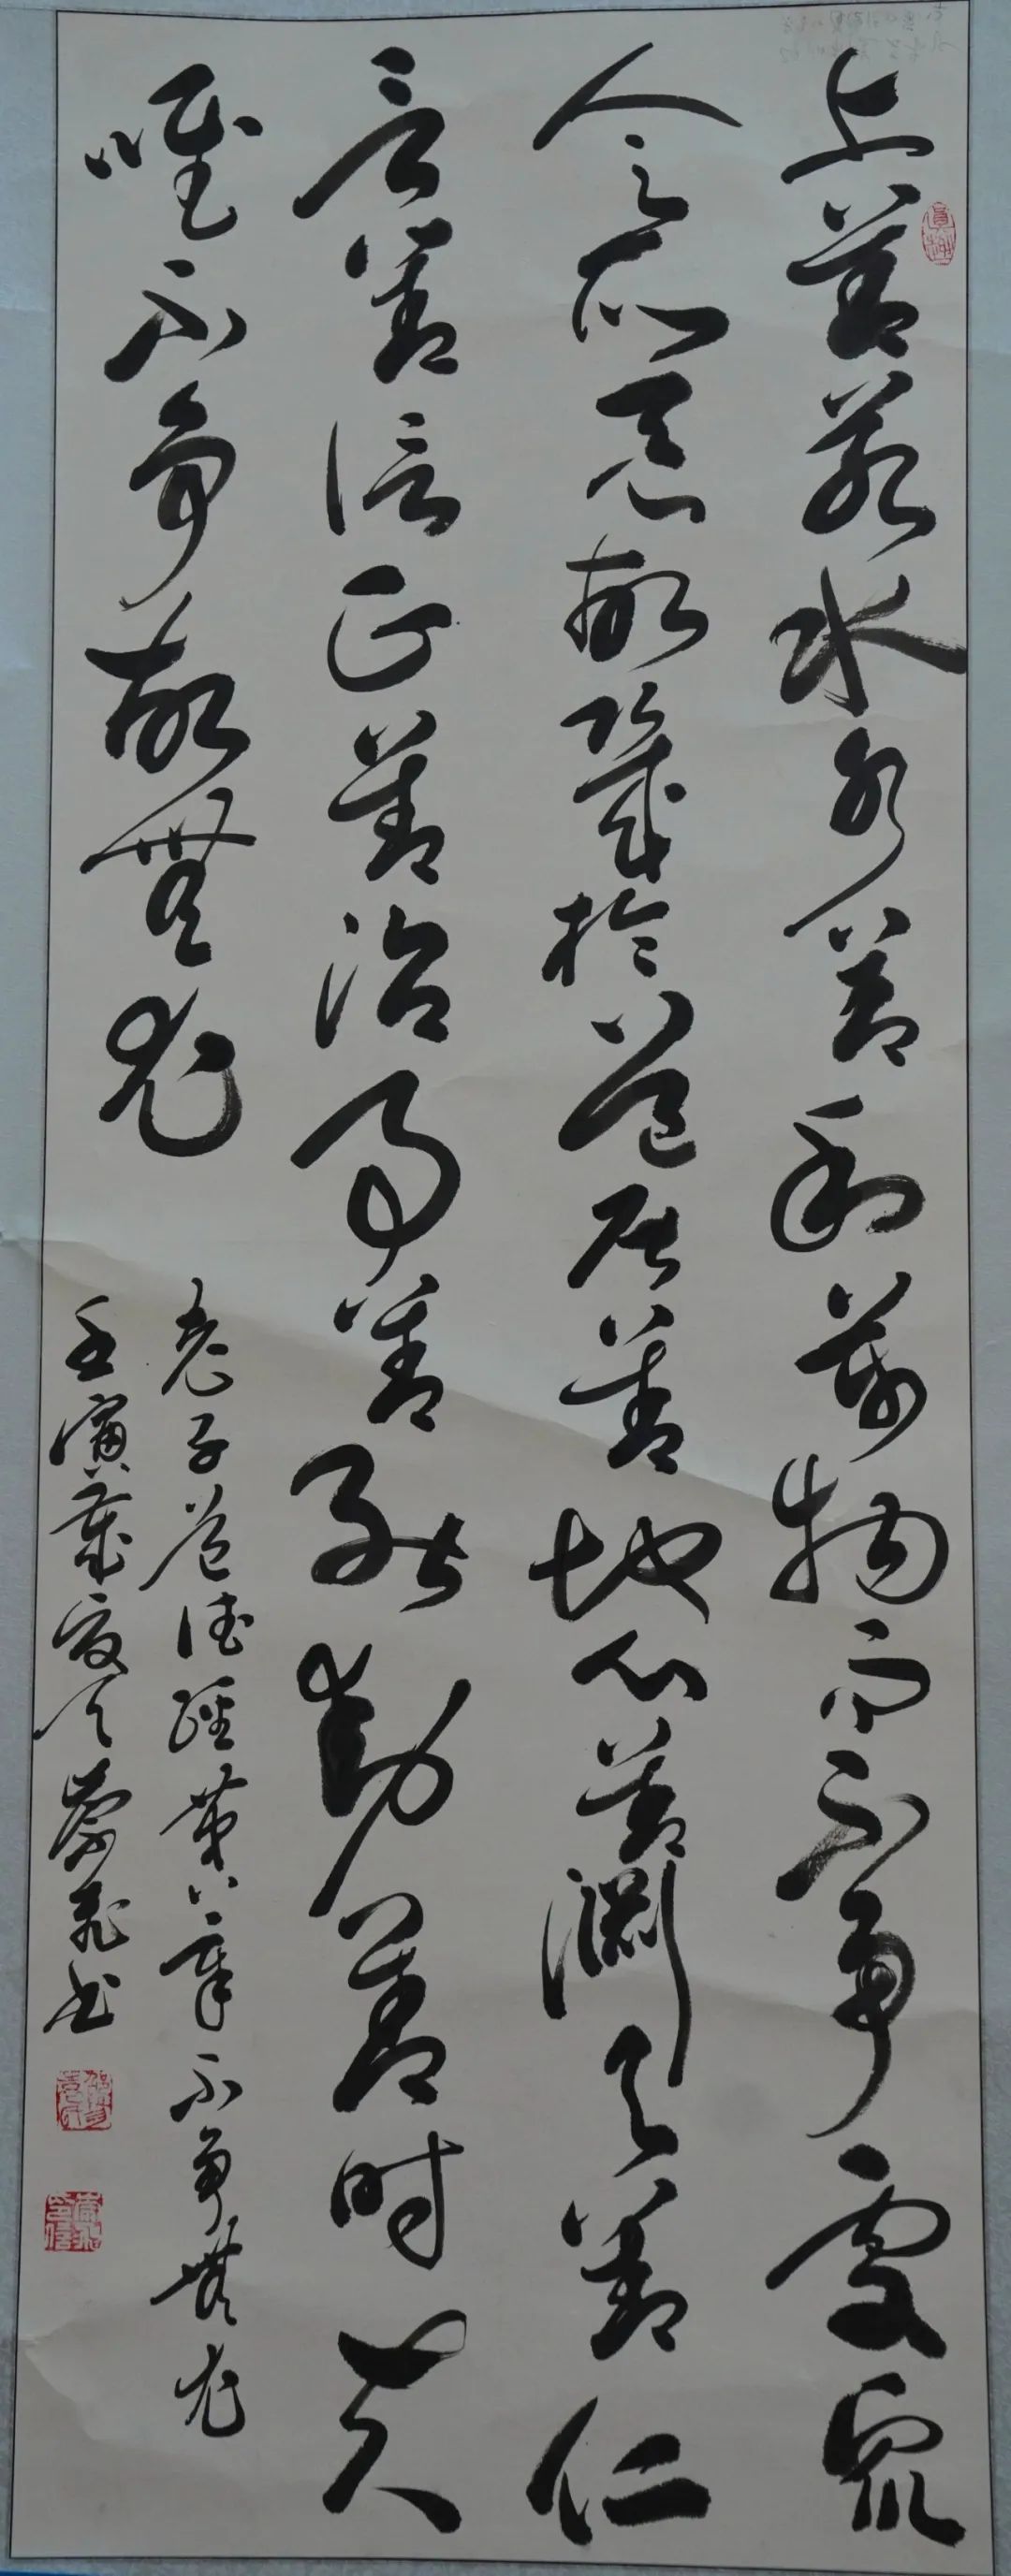 上善若水水善利萬物而不爭處眾
人之所惡故幾於道居善地心善淵與善仁
言善信正善治事善能動善時夫
唯不爭故無尤
老子道德經第八章不爭無尤
壬寅歲夏書